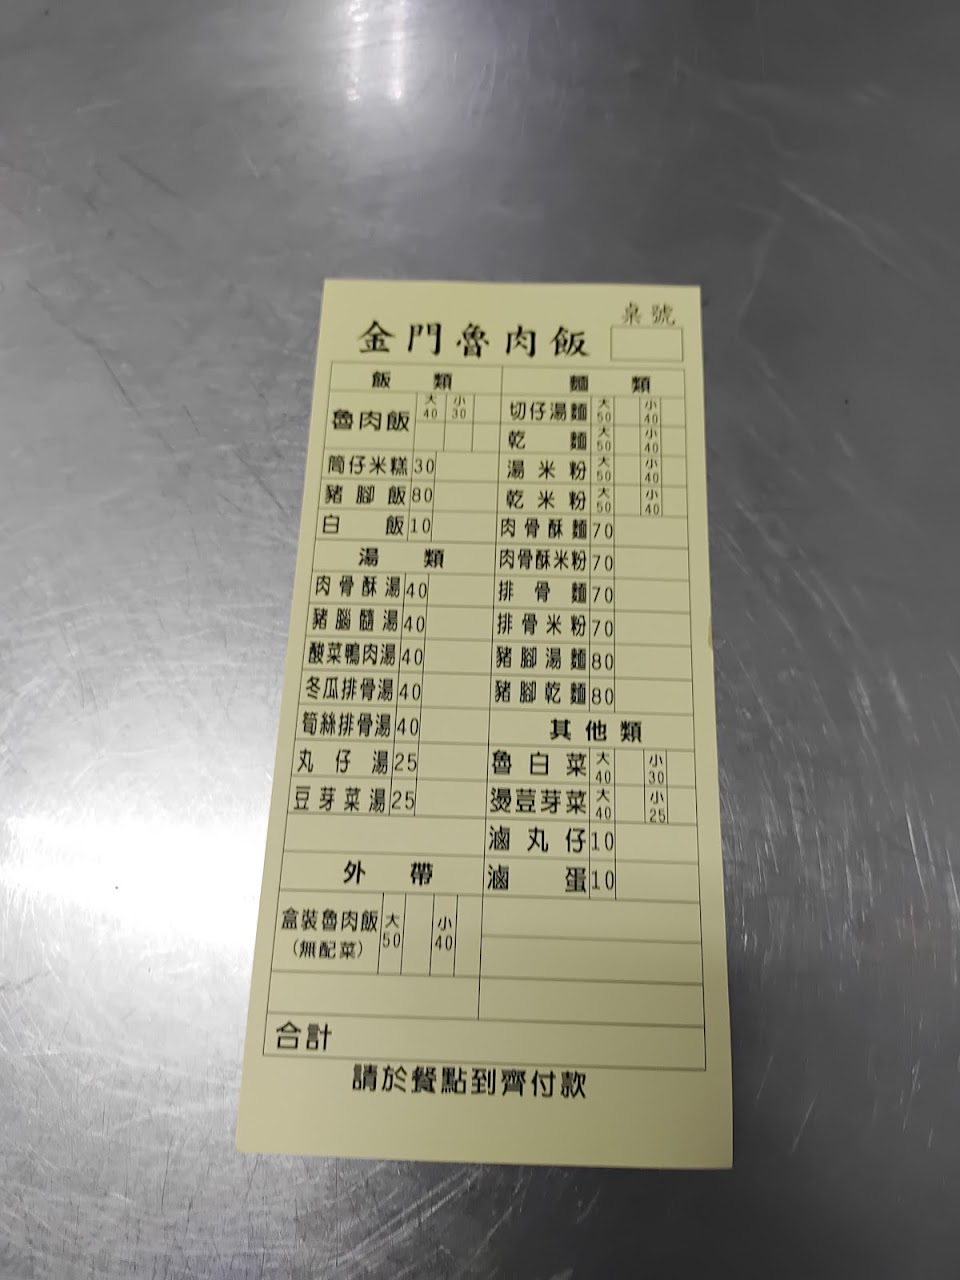 桌號
金門魯肉飯
飯類
魯肉飯 大40 小30
筒仔米糕 30
豬腳飯 80
白飯 10
湯類
肉骨酥湯 40
豬腦髓湯 40
酸菜鴨肉湯 40
冬瓜排骨湯 40
筍絲排骨湯 40
丸仔湯 25
豆芽菜湯 25
外帶
盒裝魯肉飯 大50 小40
(無配菜)
麵類
切仔湯麵 大50 小40
乾麵 大50 小40
湯米粉 大50 小40
乾米粉 大50 小40
肉骨酥麵 70
肉骨酥米粉 70
排骨麵 70
排骨米粉 70
豬腳湯麵 80
豬腳乾麵 80
其他類
魯白菜 大40 小30
燙荳芽菜 大40 小25
滷丸仔 10
滷蛋 10
合計
請於餐點到齊付款